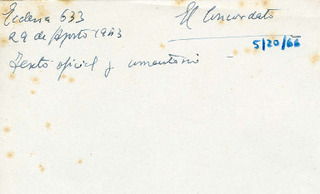 Ecclesia 633
El Concordato
29 de Agosto 1953
5/20/66
Texto oficial y comentario